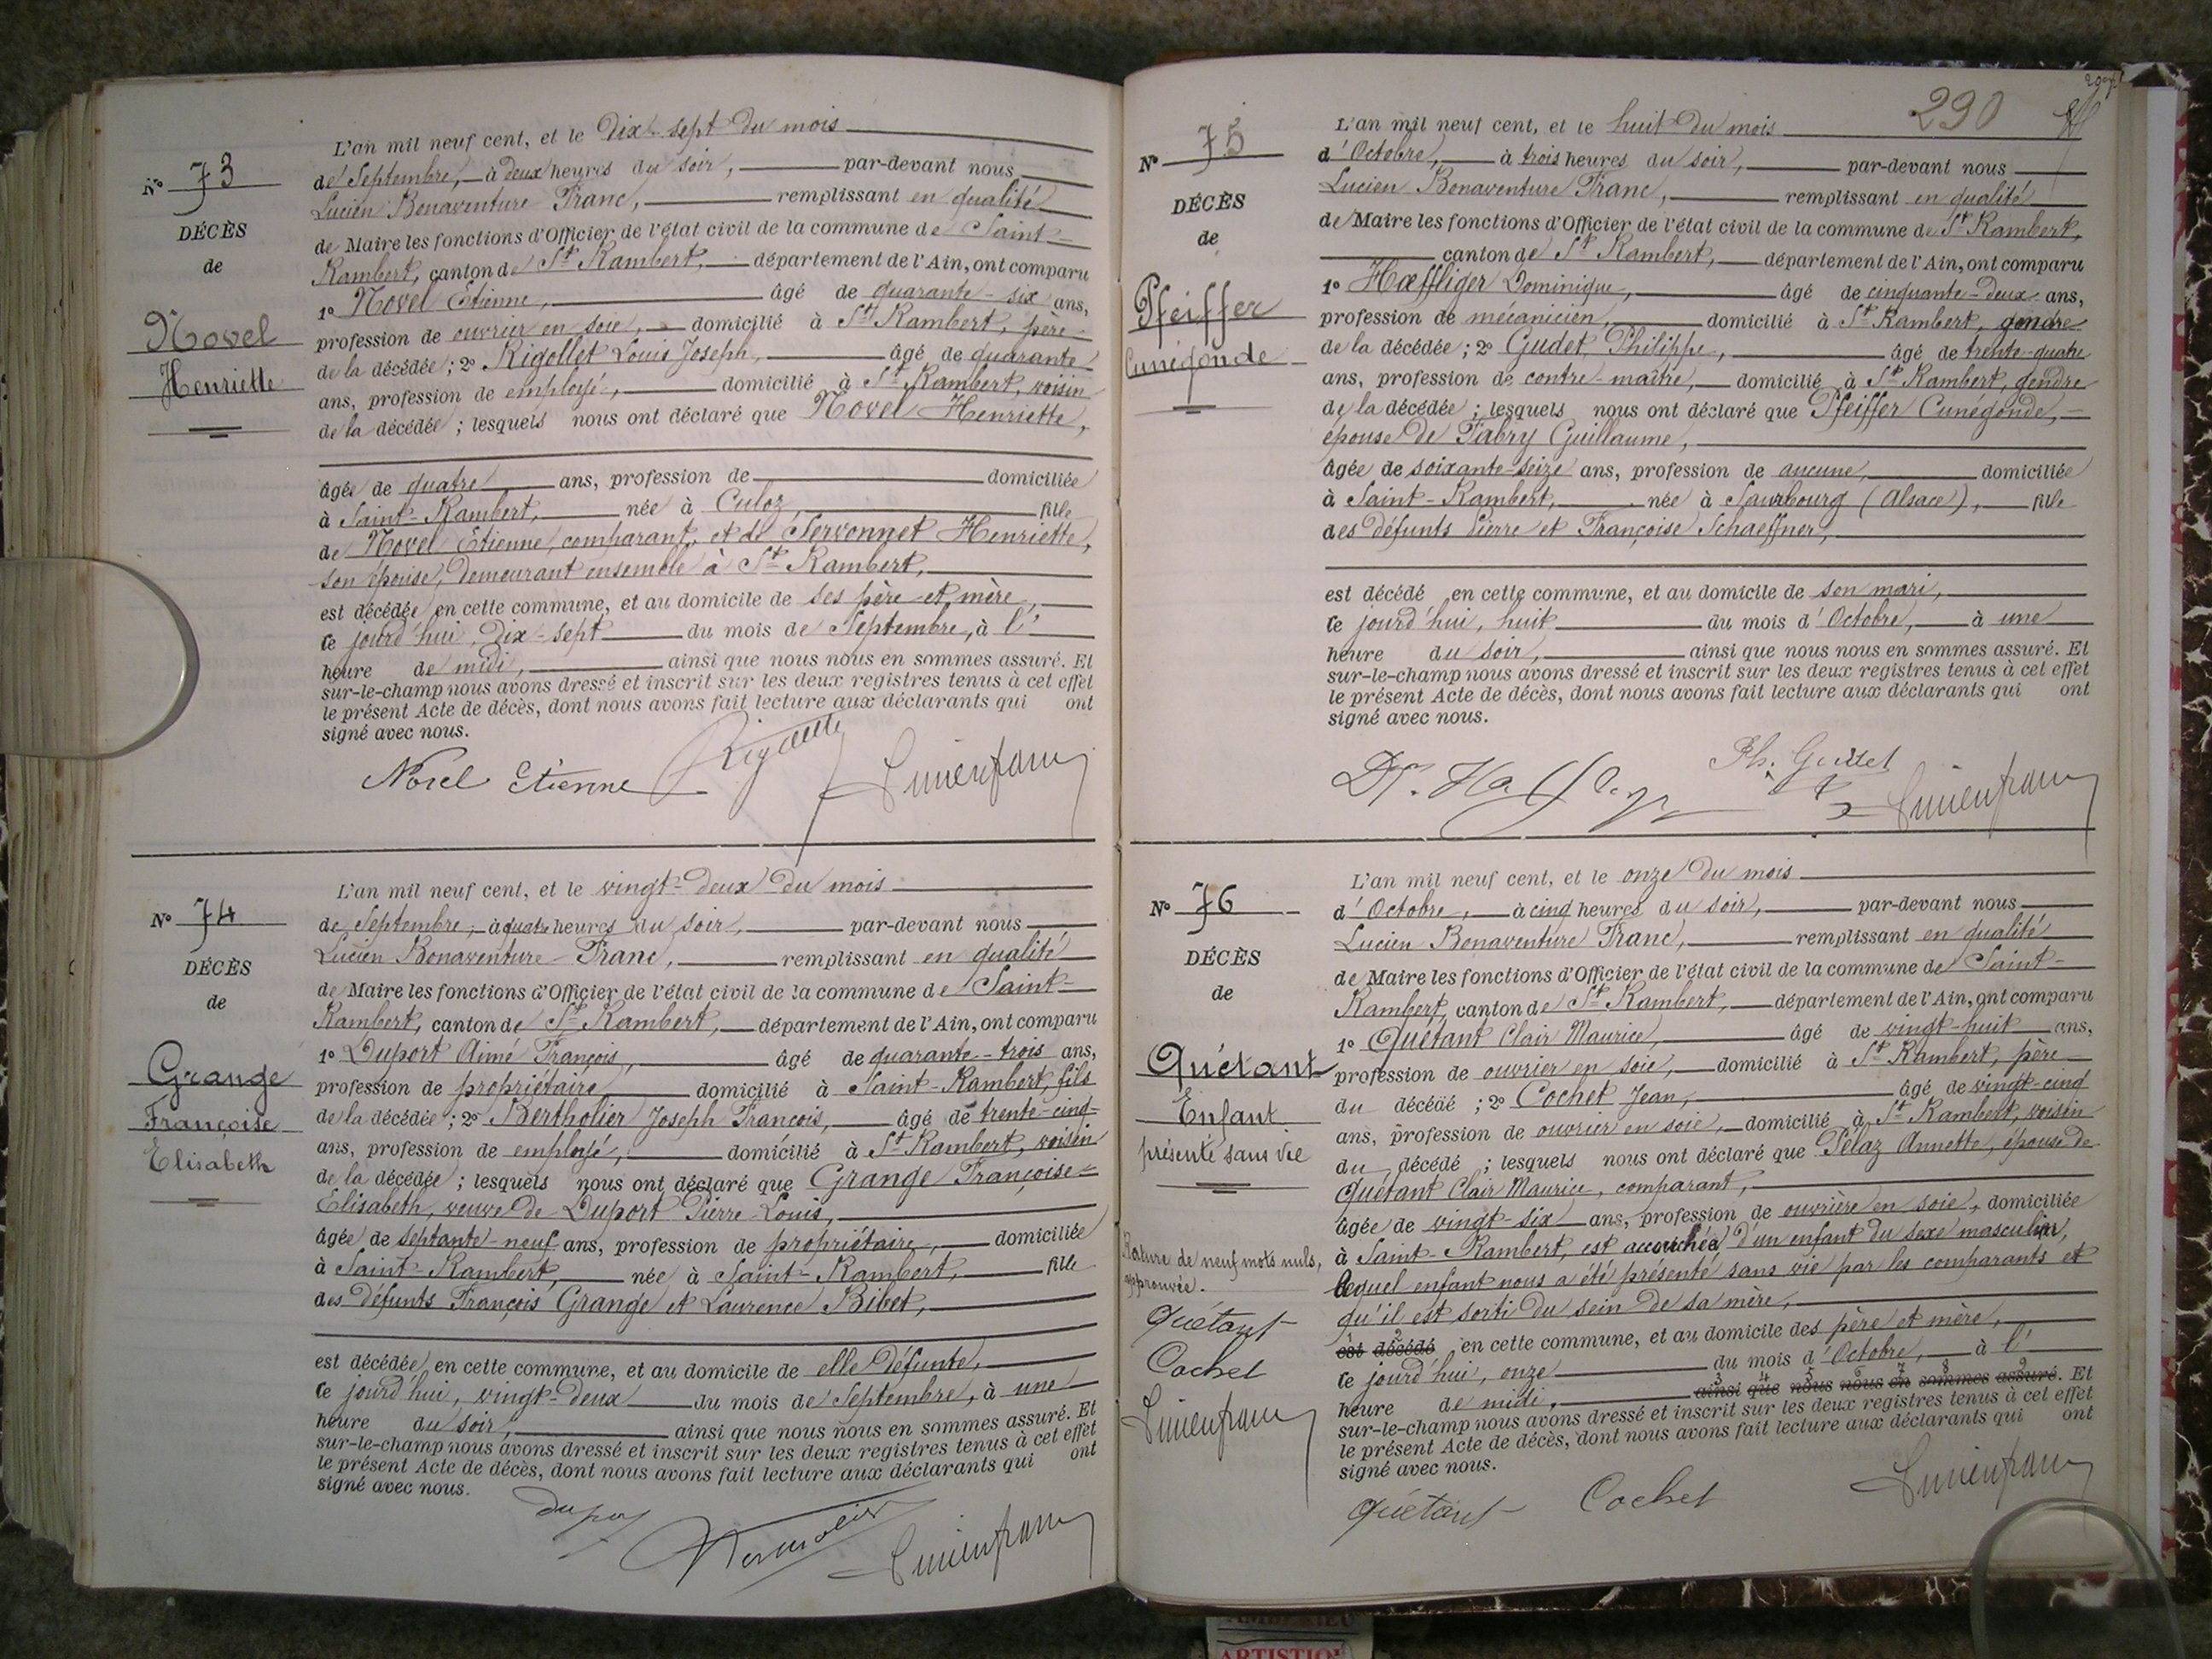 N° 73
DÉCÈS
de
Novel
Henriette
L'an mil neuf cent, et le dix-sept du mois
de Septembre, à deux heures du soir, par-devant nous
Lucien Bonaventure Franc, remplissant en qualité
de Maire les fonctions d'Officier de l'état civil de la commune de Saint-
Rambert, canton de St Rambert, département de l'Ain, ont comparu
1o Novel Etienne, âgé de quarante-six ans,
profession de ouvrier en soie, domicilié à St Rambert, père
de la décédée ; 2o Rigollet Louis Joseph, âgé de quarante
ans, profession de employé, domicilié à St Rambert, voisin
de la décédée ; lesquels nous ont déclaré que Novel Henriette,
âgée de quatre ans, profession de domiciliée
à Saint-Rambert, née à Culoz, fille
de Novel Etienne, comparant, et de Servonnet Henriette,
son épouse, demeurant ensemble à St Rambert,
est décédée en cette commune, et au domicile de ses père et mère,
ce jourd'hui, dix-sept du mois de Septembre, à l'
heure de midi, ainsi que nous nous en sommes assuré. Et
sur-le-champ nous avons dressé et inscrit sur les deux registres tenus à cet effet
le présent Acte de décès, dont nous avons fait lecture aux déclarants qui ont
signé avec nous.
Novel Etienne Rigollet Lucienfranc
N° 74
DÉCÈS
de
Grange
Françoise
Elisabeth
L'an mil neuf cent, et le vingt-deux du mois
de Septembre, à quatre heures du soir, par-devant nous
Lucien Bonaventure Franc, remplissant en qualité
de Maire les fonctions d'Officier de l'état civil de la commune de Saint-
Rambert, canton de St Rambert, département de l'Ain, ont comparu
1o Duport Aimé François, âgé de quarante-trois ans,
profession de propriétaire domicilié à Saint-Rambert, fils
de la décédée ; 2o Bertholier Joseph François, âgé de trente-cinq
ans, profession de employé, domicilié à St Rambert, voisin
de la décédée ; lesquels nous ont déclaré que Grange Françoise
Elisabeth, veuve de Duport Pierre Louis,
âgée de septante-neuf ans, profession de propriétaire, domiciliée
à Saint-Rambert, née à Saint-Rambert, fille
des défunts François Grange et Laurence Bibet,
est décédée en cette commune, et au domicile de elle défunte,
ce jourd'hui, vingt-deux du mois de Septembre, à une
heure du soir, ainsi que nous nous en sommes assuré. Et
sur-le-champ nous avons dressé et inscrit sur les deux registres tenus à cet effet
le présent Acte de décès, dont nous avons fait lecture aux déclarants qui ont
signé avec nous.
Lucienfranc
290
N° 75
DÉCÈS
de
Pfeiffer
Cunégonde
L'an mil neuf cent, et le huit du mois
d'Octobre, à trois heures du soir, par-devant nous
Lucien Bonaventure Franc, remplissant en qualité
de Maire les fonctions d'Officier de l'état civil de la commune de St Rambert,
canton de St Rambert, département de l'Ain, ont comparu
1o Hœffliger Dominique, âgé de cinquante-deux ans,
profession de mécanicien, domicilié à St Rambert, gendre
de la décédée ; 2o Gudet Philippe, âgé de trente-quatre
ans, profession de contre-maître, domicilié à St Rambert, gendre
de la décédée ; lesquels nous ont déclaré que Pfeiffer Cunégonde,
épouse de Fabry Guillaume,
âgée de soixante-seize ans, profession de aucune, domiciliée
à Saint-Rambert, née à Saurbourg (Alsace), fille
des défunts Pierre et Françoise Schaeffner,
est décédé en cette commune, et au domicile de son mari,
ce jourd'hui, huit du mois d'Octobre, à une
heure du soir, ainsi que nous nous en sommes assuré. Et
sur-le-champ nous avons dressé et inscrit sur les deux registres tenus à cet effet
le présent Acte de décès, dont nous avons fait lecture aux déclarants qui ont
signé avec nous.
Lucienfranc
N° 76
DÉCÈS
de
Quétant
Enfant
présenté sans vie
Rature de neuf mots nuls,
approuvée.
Quétant
Cochet
Lucienfranc
L'an mil neuf cent, et le onze du mois
d'Octobre, à cinq heures du soir, par-devant nous
Lucien Bonaventure Franc, remplissant en qualité
de Maire les fonctions d'Officier de l'état civil de la commune de Saint-
Rambert, canton de St Rambert, département de l'Ain, ont comparu
1o Quétant Clair Maurice, âgé de vingt-huit ans,
profession de ouvrier en soie, domicilié à St Rambert, père
du décédé ; 2o Cochet Jean, âgé de vingt-cinq
ans, profession de ouvrier en soie, domicilié à St Rambert, voisin
du décédé ; lesquels nous ont déclaré que Pélaz Annette, épouse de
Quétant Clair Maurice, comparant,
âgée de vingt-six ans, profession de ouvrière en soie, domiciliée
à Saint-Rambert, est accouchée d'un enfant du sexe masculin,
lequel enfant nous a été présenté sans vie par les comparants et
qu'il est sorti du sein de sa mère,
est décédé en cette commune, et au domicile des père et mère,
ce jourd'hui, onze du mois d'Octobre, à l'
heure de midi, ainsi que nous nous en sommes assuré. Et
sur-le-champ nous avons dressé et inscrit sur les deux registres tenus à cet effet
le présent Acte de décès, dont nous avons fait lecture aux déclarants qui ont
signé avec nous.
Quétant Cochet Lucienfranc
ARTISTIQ